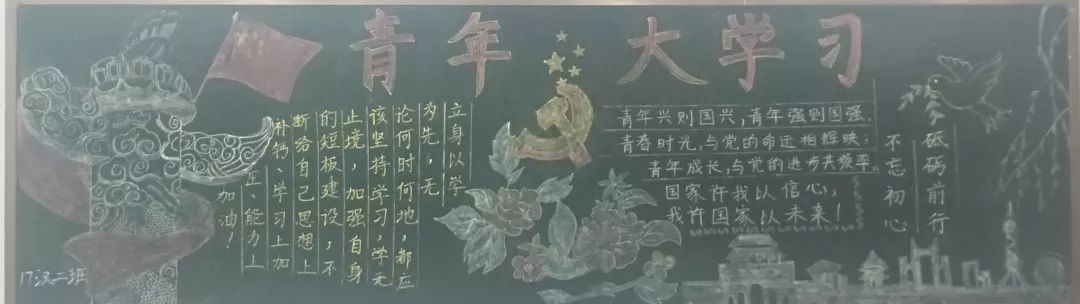 青年大学习
立身以学
为先，无
论何时何地，都应
该坚持学习，学无
止境，加强自身
的短板建设，不
断给自己思想上
补钙、学习上加
压、能力上
加油！
青年兴则国兴，青年强则国强。
青春时光，与党的命运相辉映；
青年成长，与党的进步共频率。
国家许我以信心，
我许国家以未来！
砥砺前行
不忘初心
17汉二班